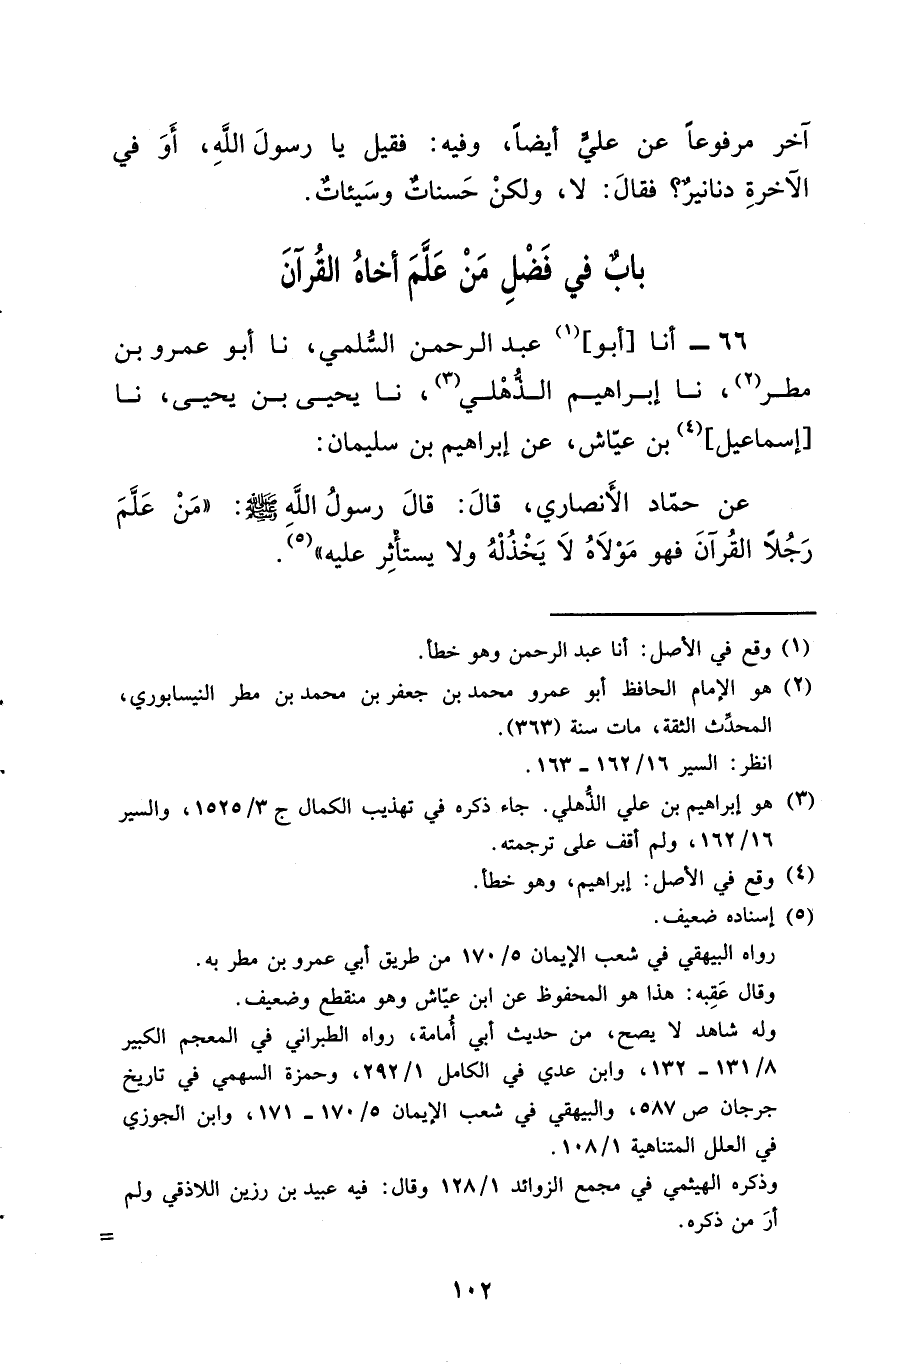 آخر مرفوعاً عن عليٍّ أيضاً، وفيه: فقيل يا رسولَ اللَّهِ، أَوَ في
الآخرةِ دنانيرٌ؟ فقالَ: لا، ولكنْ حَسناتٌ وسَيئاتٌ.
بابٌ في فَضْلِ مَنْ عَلَّمَ أخاهُ القُرآنَ
٦٦ – أنا [أبو](١) عبد الرحمن السُّلمي، نا أبو عمرو بن
مطر(٢)، نا إبراهيم الذُّهْلي(٣)، نا يحيى بن يحيى، نا
[إسماعيل](٤) بن عيّاش، عن إبراهيم بن سليمان:
عن حمّاد الأَنصاري، قالَ: قالَ رسولُ اللَّهِ ﷺ: «مَنْ عَلَّمَ
رَجُلاً القُرآنَ فهو مَوْلاَهُ لاَ يَخْذُلْهُ ولا يستأْثِر عليه»(٥).
(١) وقع في الأصل: أنا عبد الرحمن وهو خطأ.
(٢) هو الإمام الحافظ أبو عمرو محمد بن جعفر بن محمد بن مطر النيسابوري،
المحدِّث الثقة، مات سنة (٣٦٣).
انظر: السير ١٦٢/١٦ – ١٦٣.
(٣) هو إبراهيم بن علي الذُّهلي. جاء ذكره في تهذيب الكمال ج ١٥٢٥/٣، والسير
١٦٢/١٦، ولم أقف على ترجمته.
(٤) وقع في الأصل: إبراهيم، وهو خطأ.
(٥) إسناده ضعيف.
رواه البيهقي في شعب الإيمان ١٧٠/٥ من طريق أبي عمرو بن مطر به.
وقال عَقِبه: هذا هو المحفوظ عن ابن عيّاش وهو منقطع وضعيف.
وله شاهد لا يصح، من حديث أبي أُمامة، رواه الطبراني في المعجم الكبير
١٣١/٨ – ١٣٢، وابن عدي في الكامل ٢٩٢/١، وحمزة السهمي في تاريخ
جرجان ص ٥٨٧، والبيهقي في شعب الإيمان ١٧٠/٥ – ١٧١، وابن الجوزي
في العلل المتناهية ١٠٨/١.
وذكره الهيثمي في مجمع الزوائد ١٢٨/١ وقال: فيه عبيد بن رزين اللاذقي ولم
أرَ من ذكره.
=
١٠٢